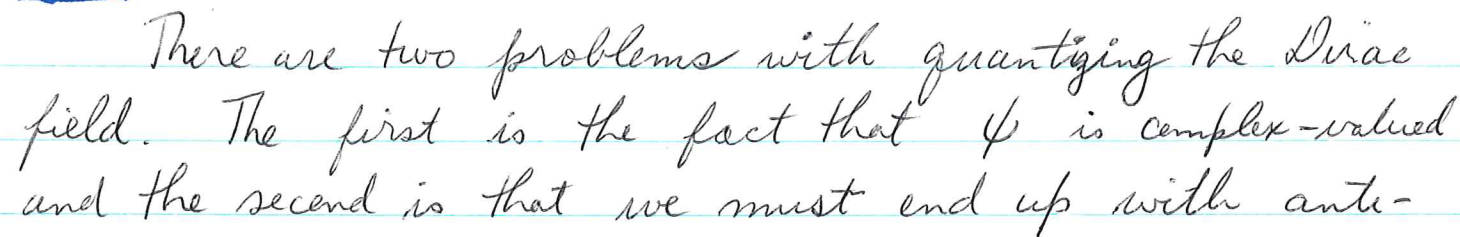 There are two problems with quantizing the Dirac
field. The first is the fact that ψ is complex-valued
and the second is that we must end up with anti-